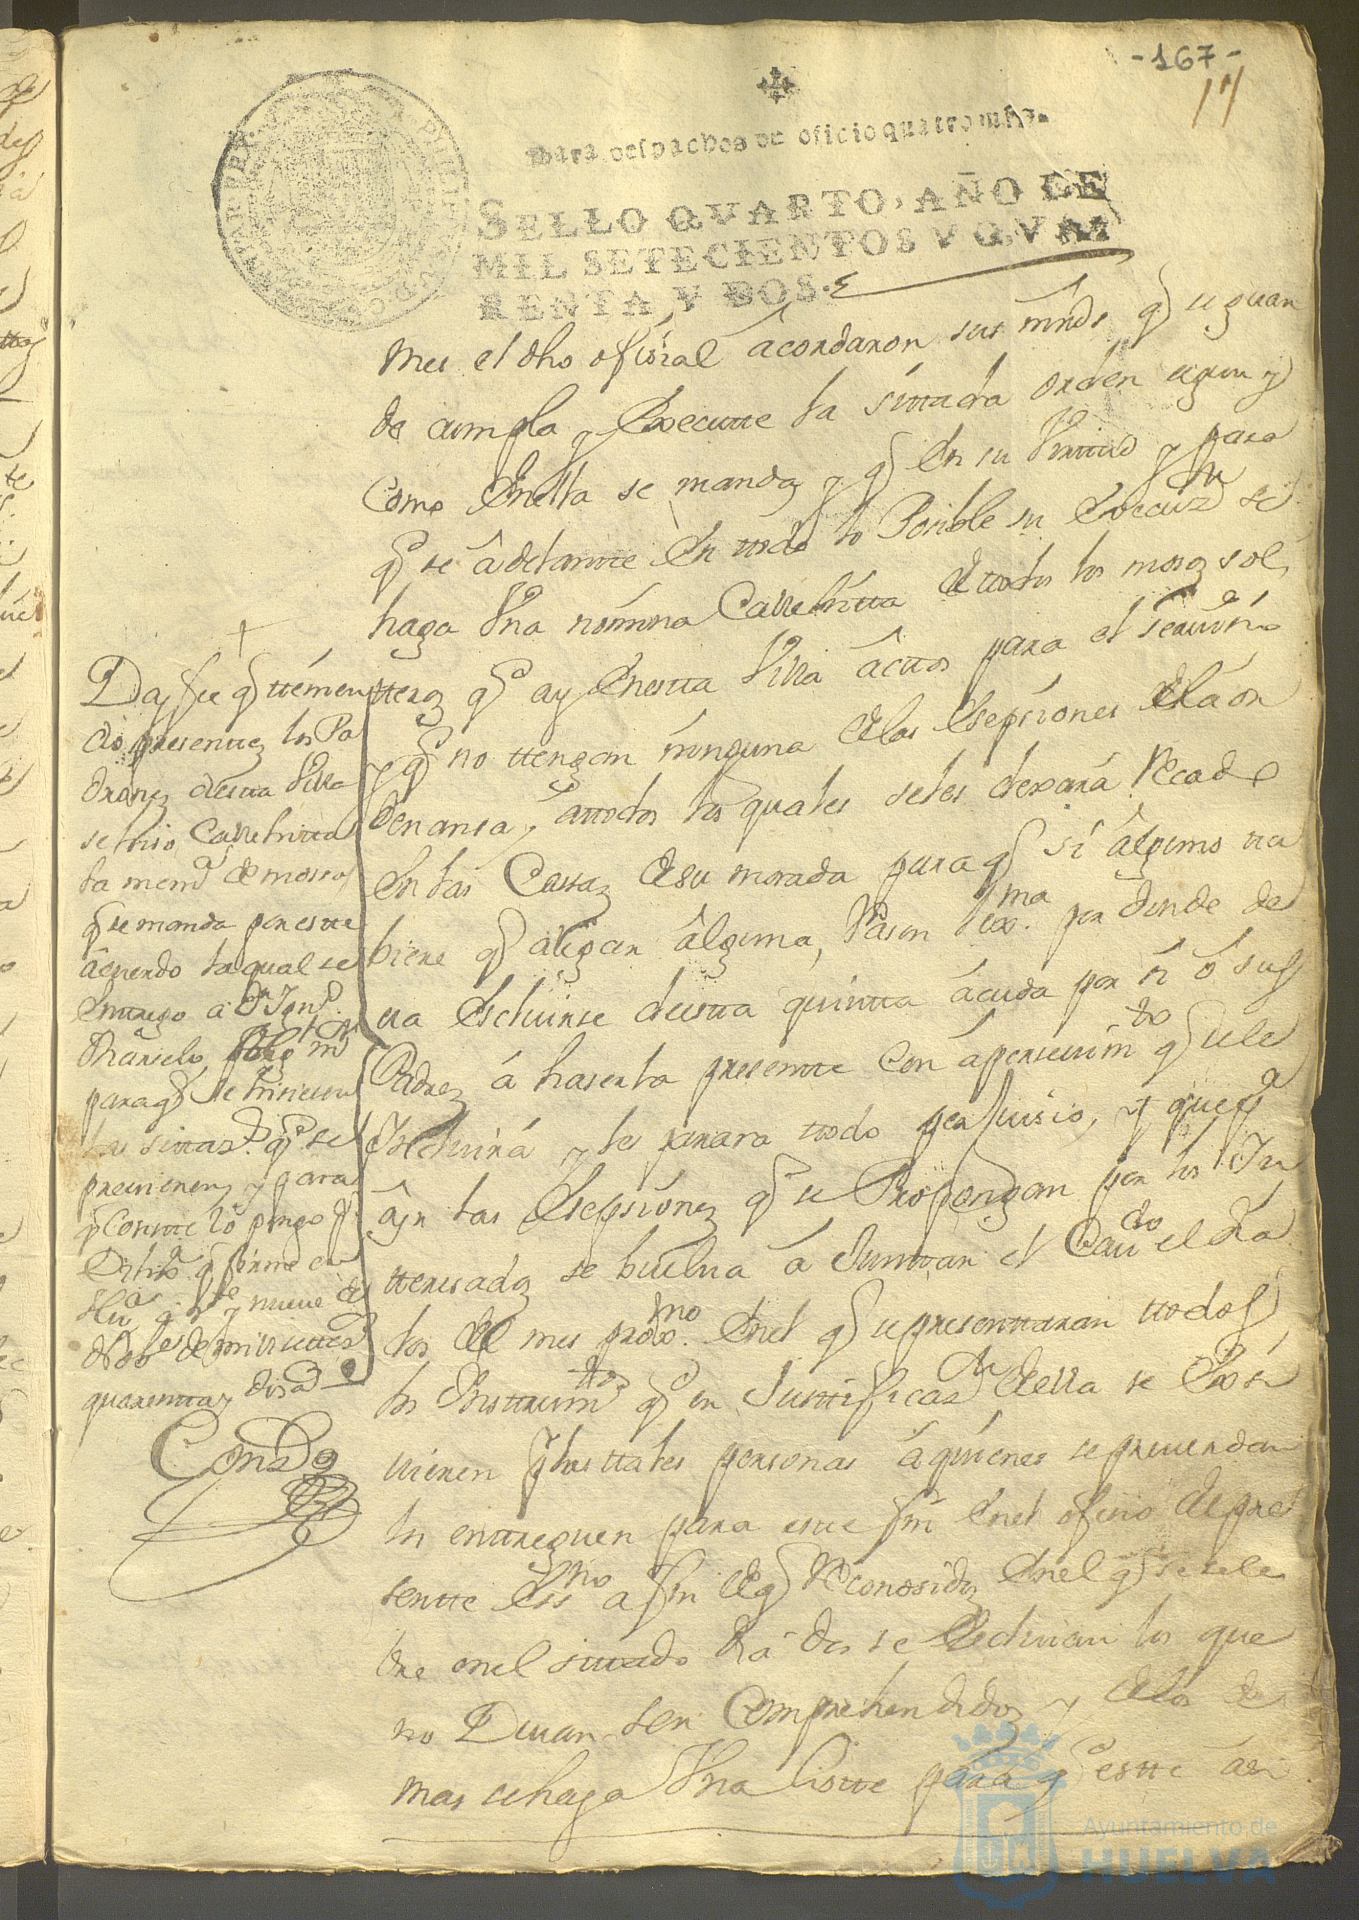 -167-
17
Para despachos de oficio quatro mrs.
SELLO QVARTO, AÑO DE
MIL SETECIENTOS Y QVAR
RENTA Y DOS.
mes el dho ofisial acordaron sus mrds q se guar
de cumpla y Execute la sittada orden segun y
Como Enella se manda y q En su Virttud y para
q se adelantte En ttodo lo Posible su Execuzn se
haga Vna nomina Callehitta de ttodos los mosos sol
tteros q ay Enestta Villa acttos para el servizio
y q no ttengan ninguna delas Esepsiones dela or
denansa, attodos los quales seles dexara Recado
En las Casas de su morada para q si alguno tu
biere q alegar alguna Rason lexma. por donde de
va Escluirse de esta quintta acuda por si o sus
Padres a haserla presentte Con apersevimto q sele
Incluira y les parara ttodo perjuisio, y que pa
oyr las Esepsiones q se Propongan por los In
tteresados se buelva a Junttar el Cavdo el dia
dos del mes proxmo. Enel q se presenttaran ttodos
los Instrumtos q en Justtificazn della se Exsi
vieren
personas a quienes se prevendra
los enttreguen para este fin Enel ofisio del pre
sentte Essno a fin de q Reconosidos Enel q se sele
bre enel sittado dia dos se Escluian los que
no Devan ser Comprehendidos y delos de
mas se haga Vna listte para q estte
Doy fee q ttenien
do presenttes los Pa
drones de esta Villa
se hiso Callehitta
la memª de mosos
q se manda por estte
acuerdo la qual se
enttrego a Dn
para q se hisiesen
las sittas. q se
previenen y para
q Constte lo pongo p
Dilixª q firme en
Huª a y nueve de
de mill settezs
quarentta y dos as
Condo
Ayuntamiento de
HUELVA